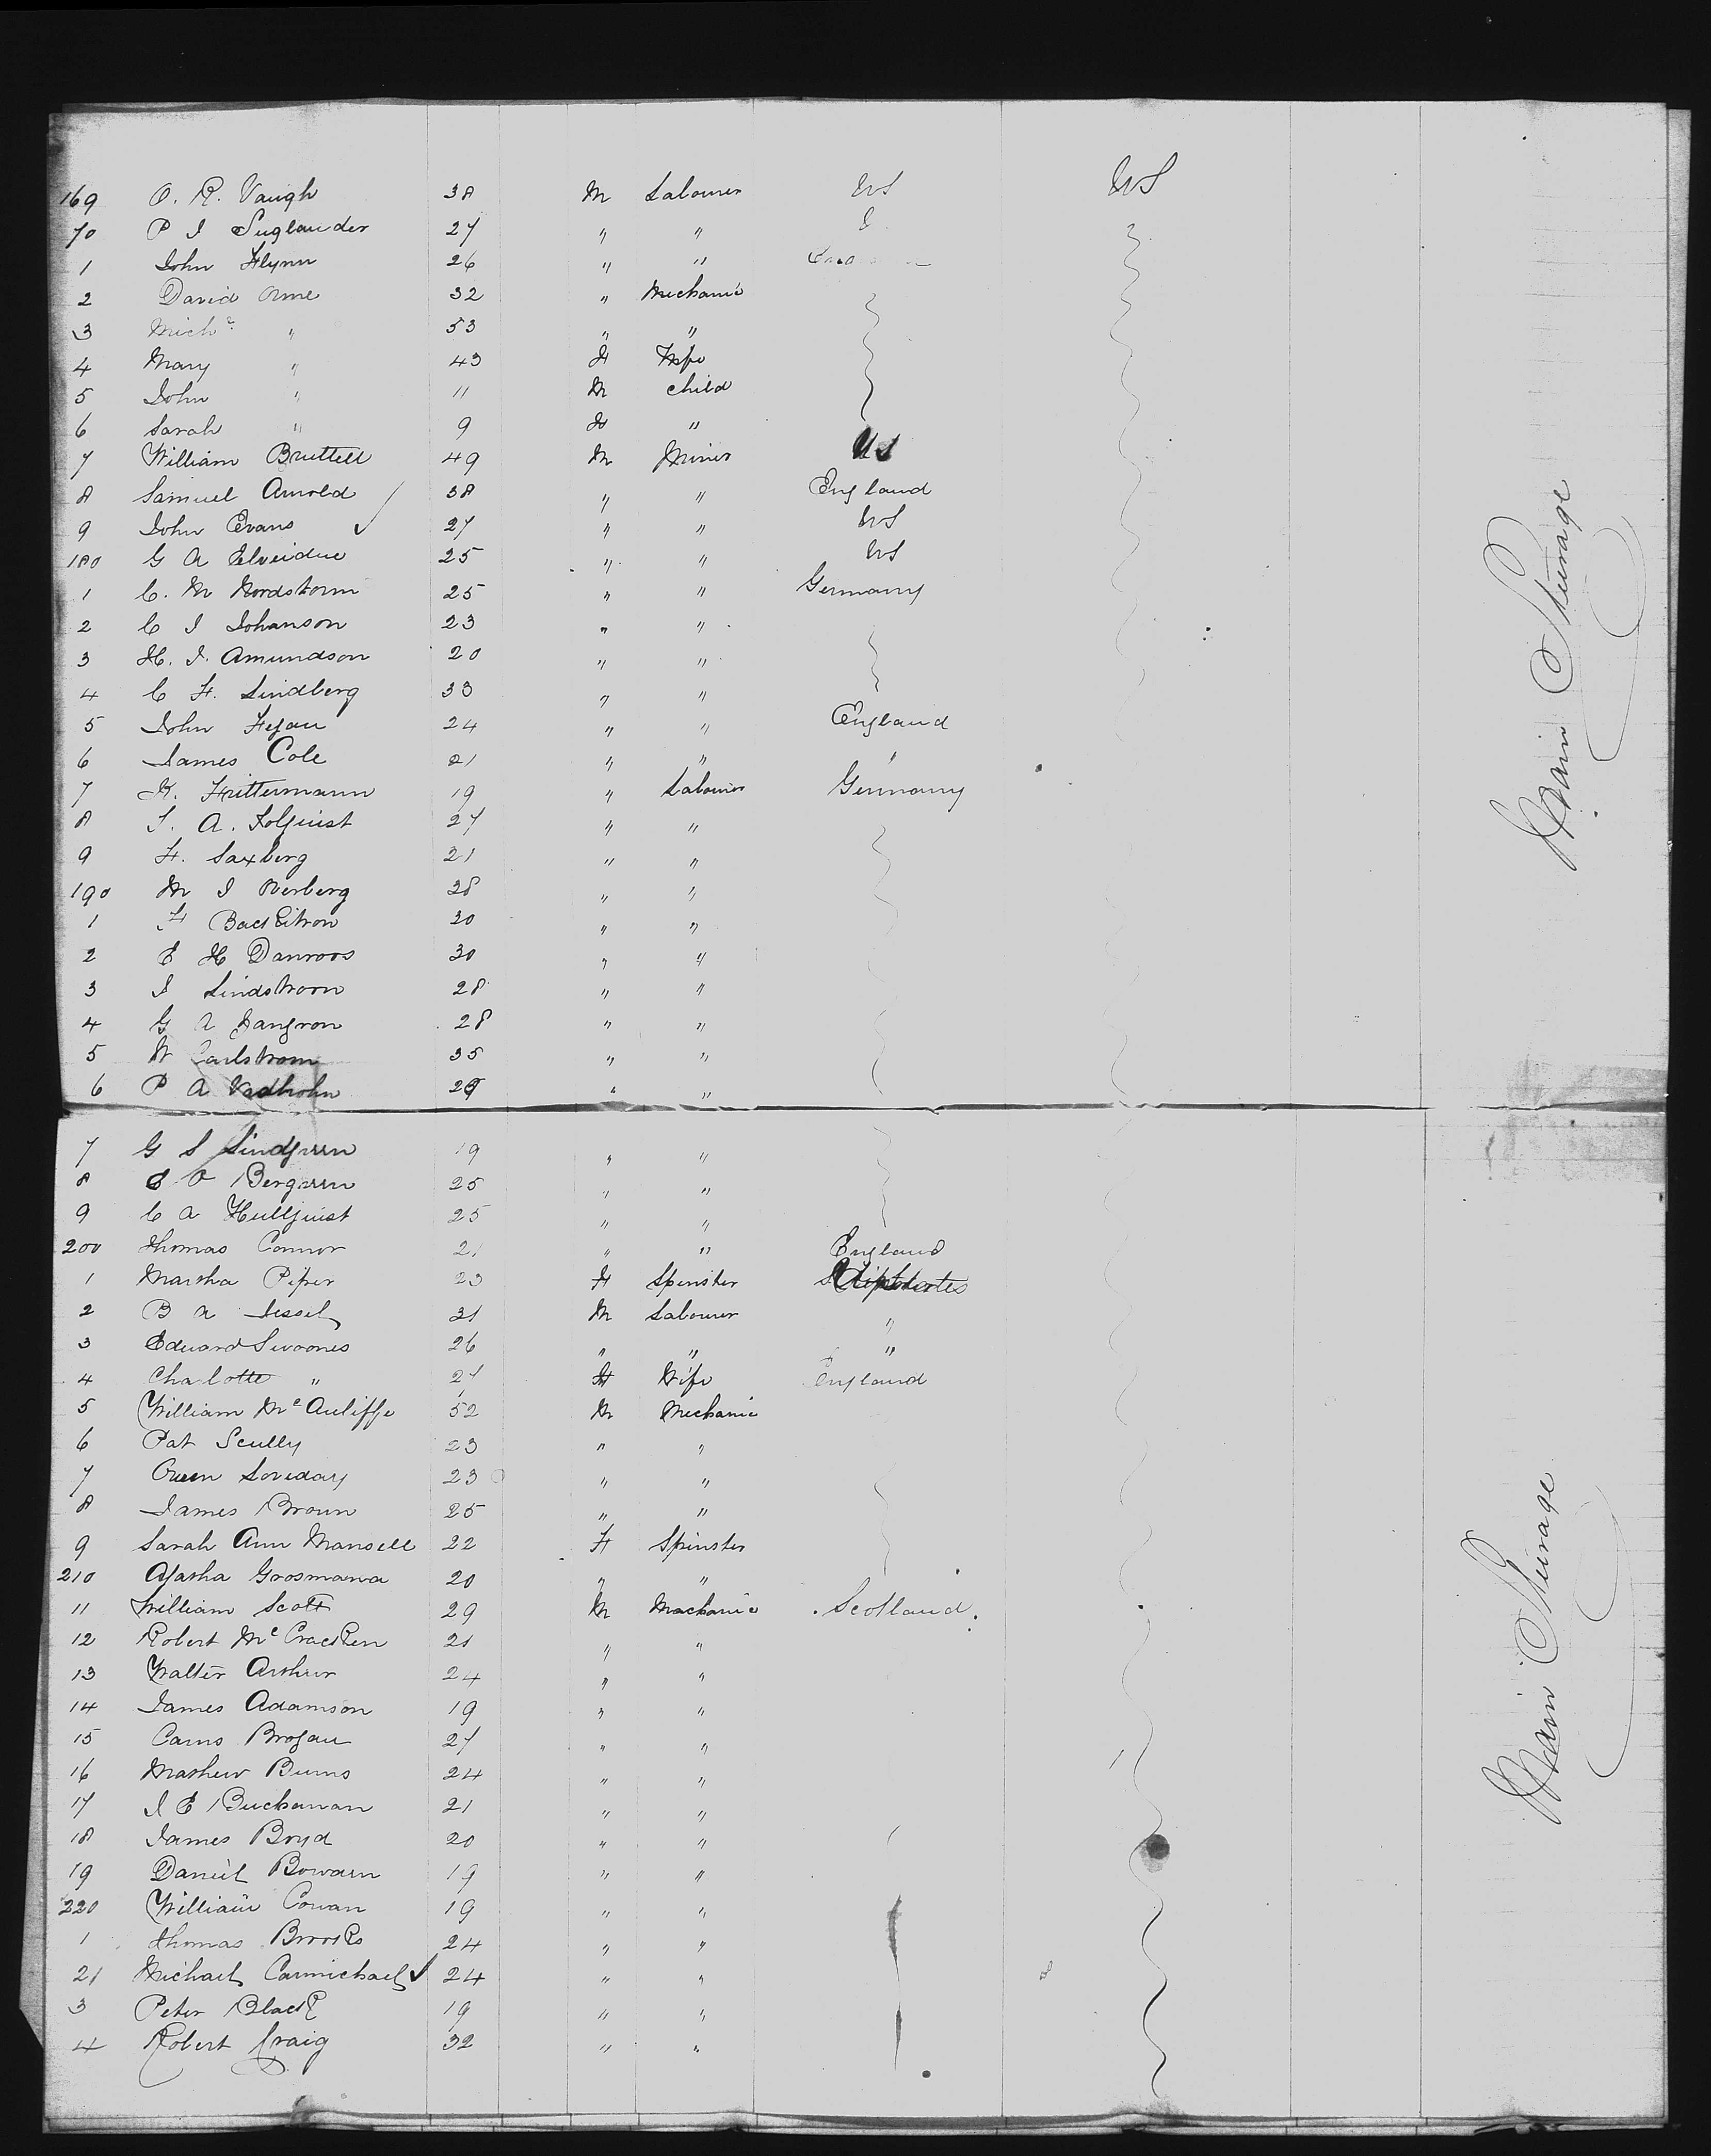 169 O. R. Vaugh 38 M Labourer US US
70 P I Englander 27 " "
1 John Flynn 26 " "
2 David Orme 32 " Mechanic
3 Mich " 53 " "
4 Mary " 43 F Wife
5 John " 11 M child
6 Sarah " 9 F "
7 William Bruttell 49 M Miner US
8 Samuel Arnold 38 " " England
9 John Evans ✓ 27 " " US
180 G A 25 " " US
1 C. M Nordstorm 25 " " Germany
2 C I Johanson 23 " "
3 H. I. Amundson 20 " "
4 C F. Lindberg 33 " "
5 John Fegan 24 " " England
6 James Cole 21 " " "
7 K. Frittermann 19 " Labourer Germany
8 S. A. 27 " "
9 F. Saxberg 21 " "
190 M I Overberg 28 " "
1 F Backstrom 30 " "
2 E H Danroos 30 " "
3 I Lindstrom 28 " "
4 G A 28 " "
5 W Carlstrom 35 " "
6 P A 29 " "
7 G S Lindgren 19 " "
8 E O Bergaren 25 " "
9 C A Hullquist 25 " "
200 Thomas Connor 21 " " England
1 Martha Piper 23 F Spinster
2 B A Jessel 31 M Labourer "
3 Edward Swoones 26 " " "
4 Charlotte " 21 F Wife England
5 William McAuliffe 52 M Mechanic
6 Pat Scully 23 " "
7 Owen Loveday 23 " "
8 James Brown 25 " "
9 Sarah Ann Mansell 22 F Spinster
210 Agatha Grosmana 20 " "
11 William Scott 29 M Machanic Scotland
12 Robert McCracken 21 " "
13 Walter Arthur 24 " "
14 James Adamson 19 " "
15 Carns Brogan 27 " "
16 Mathew Burns 24 " "
17 I E Buchanan 21 " "
18 James Boyd 20 " "
19 Daniel Bowarn 19 " "
220 William Cowan 19 " "
1 Thomas Brooks 24 " "
21 Michael Carmichael ✓ 24 " "
3 Peter Black 19 " "
4 Robert Craig 32 " "
Main Steerage
Main Steerage